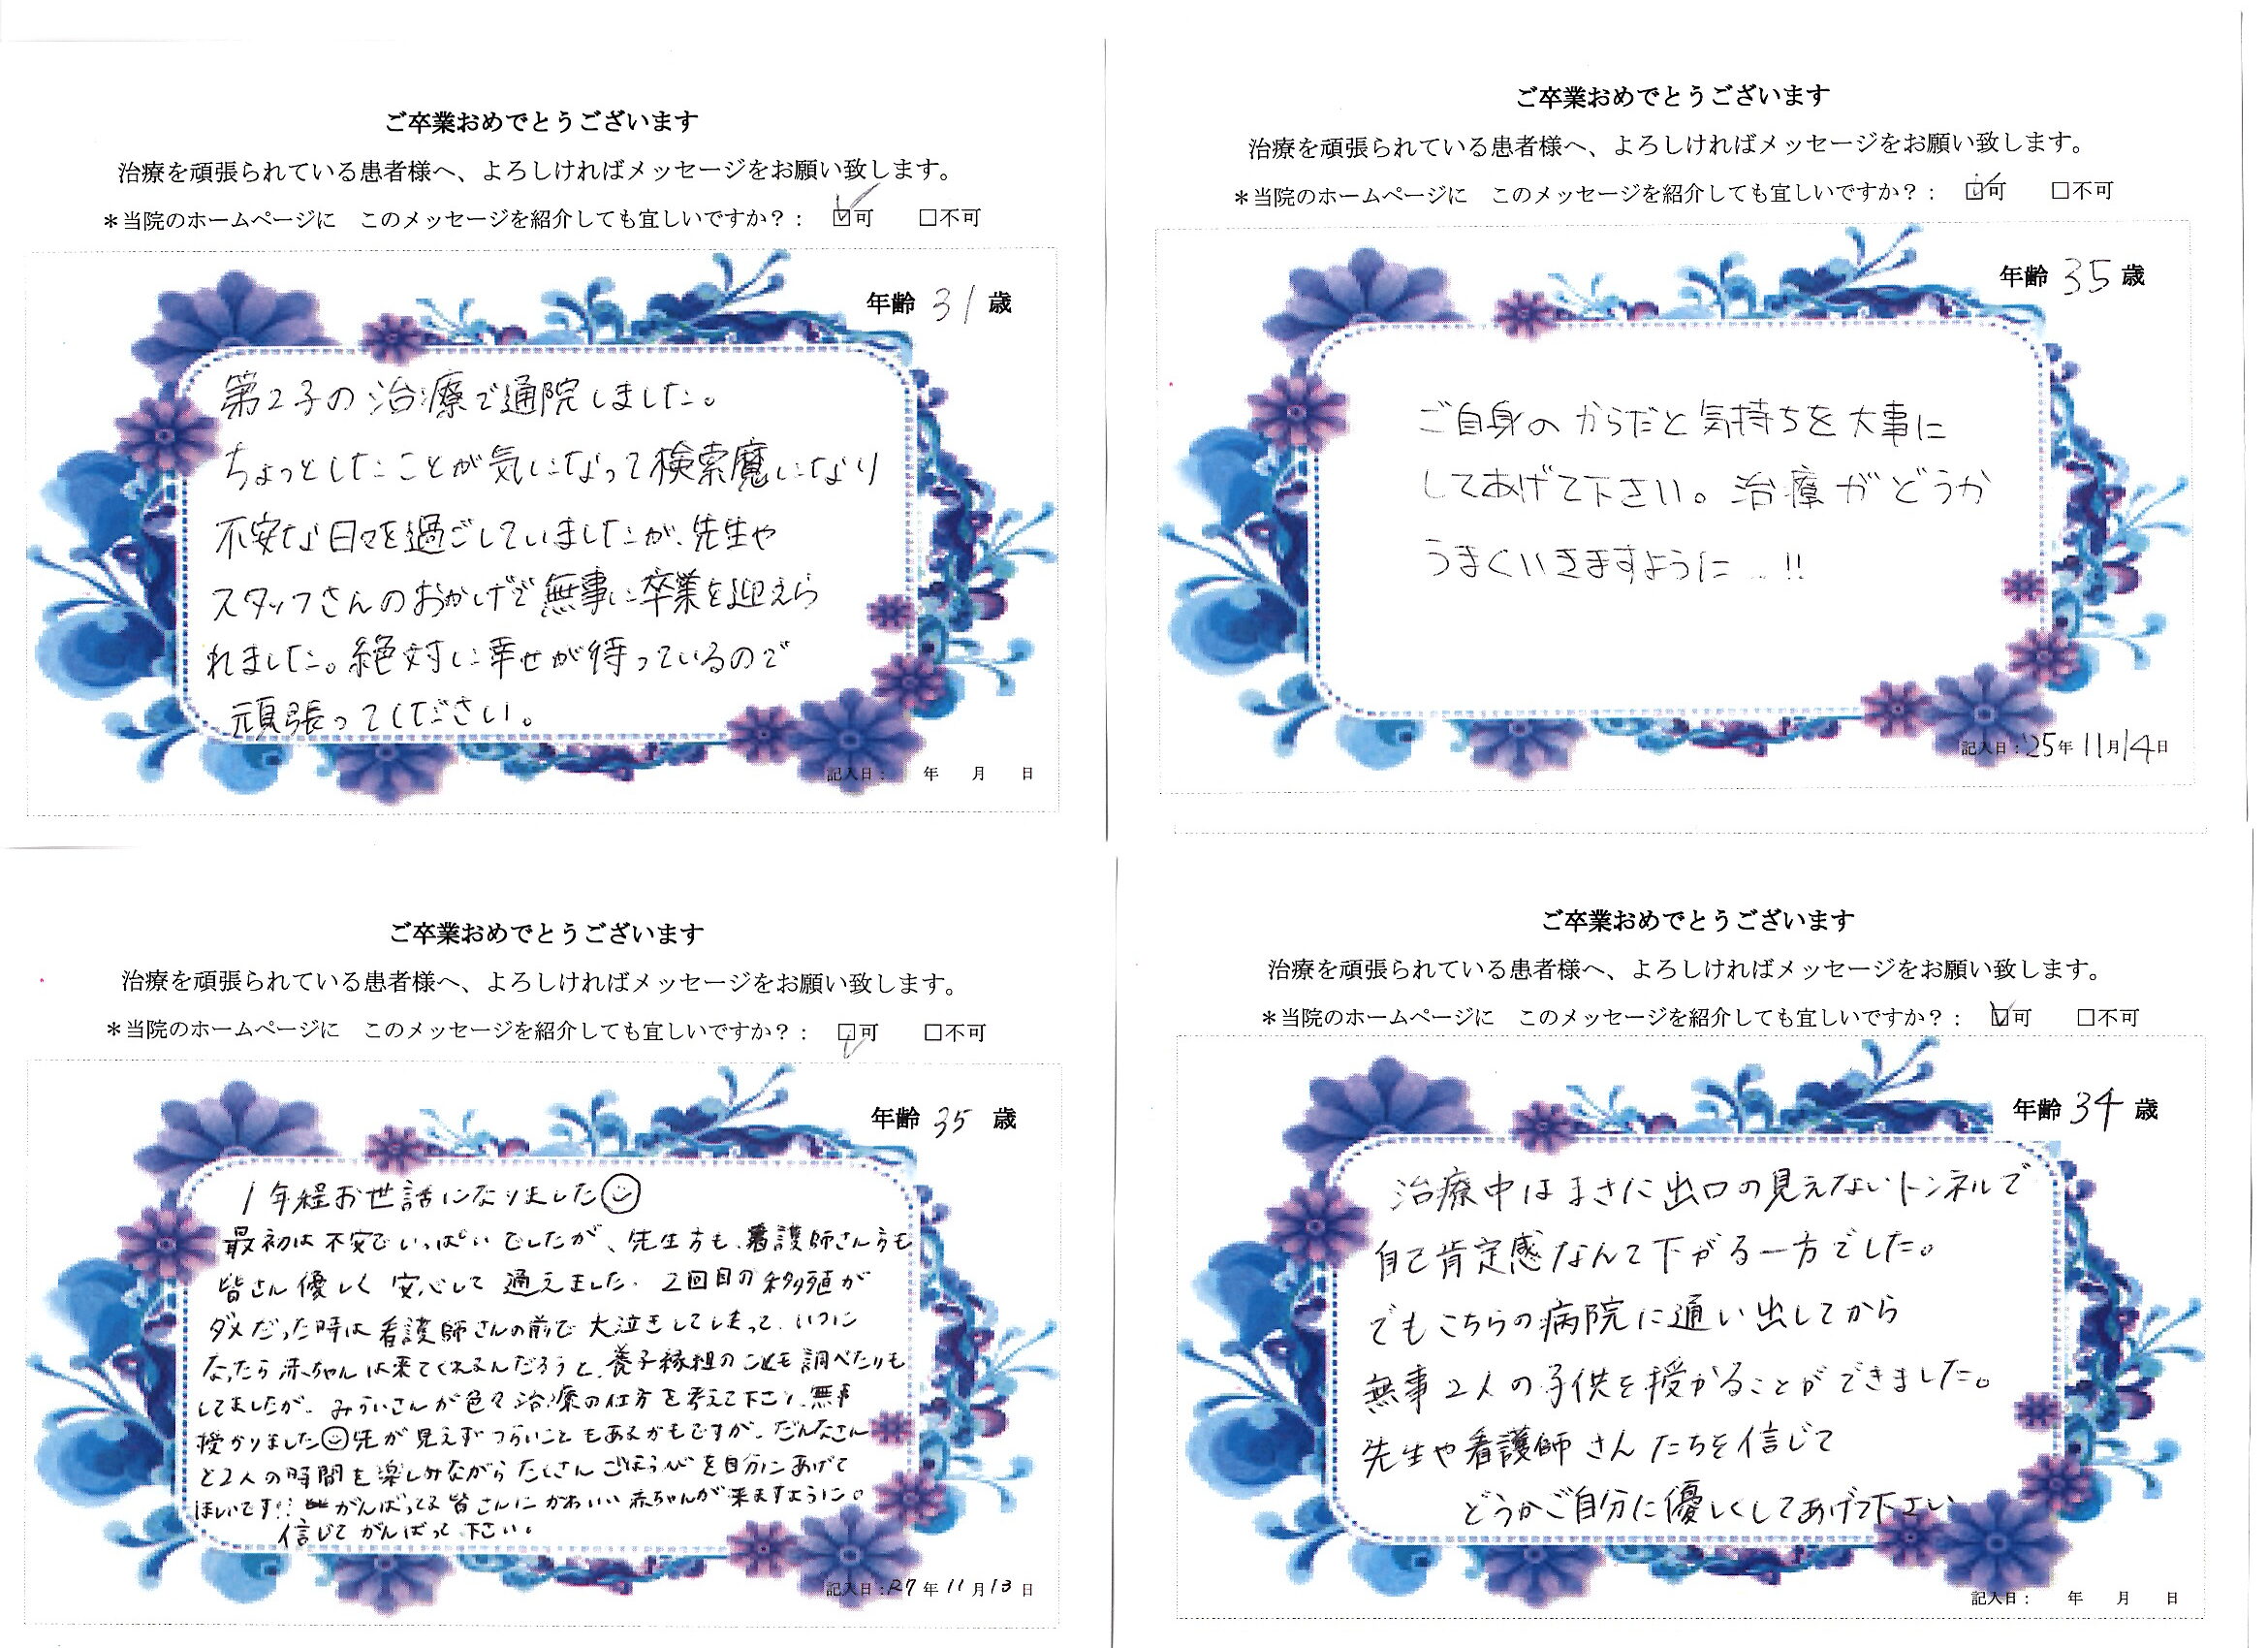 ご卒業おめでとうございます
治療を頑張られている患者様へ、よろしければメッセージをお願い致します。
＊当院のホームページに　このメッセージを紹介しても宜しいですか？：　☑可　　□不可
年齢 31 歳
第2子の治療で通院しました。
ちょっとしたことが気になって検索魔になり
不安な日々を過ごしていましたが、先生や
スタッフさんのおかげで無事に卒業を迎えら
れました。絶対に幸せが待っているので
頑張ってください。
記入日：　　年　　月　　日
ご卒業おめでとうございます
治療を頑張られている患者様へ、よろしければメッセージをお願い致します。
＊当院のホームページに　このメッセージを紹介しても宜しいですか？：　☑可　　□不可
年齢 35 歳
ご自身のからだと気持ちを大事に
してあげて下さい。治療がどうか
うまくいきますように…!!
記入日：'25年11月14日
ご卒業おめでとうございます
治療を頑張られている患者様へ、よろしければメッセージをお願い致します。
＊当院のホームページに　このメッセージを紹介しても宜しいですか？：　☑可　　□不可
年齢 35 歳
1年程お世話になりました☺
最初は不安でいっぱいでしたが、先生方も、看護師さん方も
皆さん優しく安心して通えました。2回目の移植が
ダメだった時は看護師さんの前で大泣きしてしまって、いつに
なったら赤ちゃんは来てくれるんだろうと、養子縁組のことも調べたりも
してましたが、みういさんが色々治療の仕方を考えて下さり、無事
授かりました☺先が見えずつらいこともあるかもですが、だんなさん
と2人の時間を楽しみながらたくさんごほうびを自分にあげて
ほしいです!! がんばってる皆さんにかわいい赤ちゃんが来ますように。
信じてがんばって下さい。
記入日：R7年11月13日
ご卒業おめでとうございます
治療を頑張られている患者様へ、よろしければメッセージをお願い致します。
＊当院のホームページに　このメッセージを紹介しても宜しいですか？：　☑可　　□不可
年齢 34 歳
治療中はまさに出口の見えないトンネルで
自己肯定感なんて下がる一方でした。
でもこちらの病院に通い出してから
無事2人の子供を授かることができました。
先生や看護師さんたちを信じて
どうかご自分に優しくしてあげて下さい
記入日：　　年　　月　　日